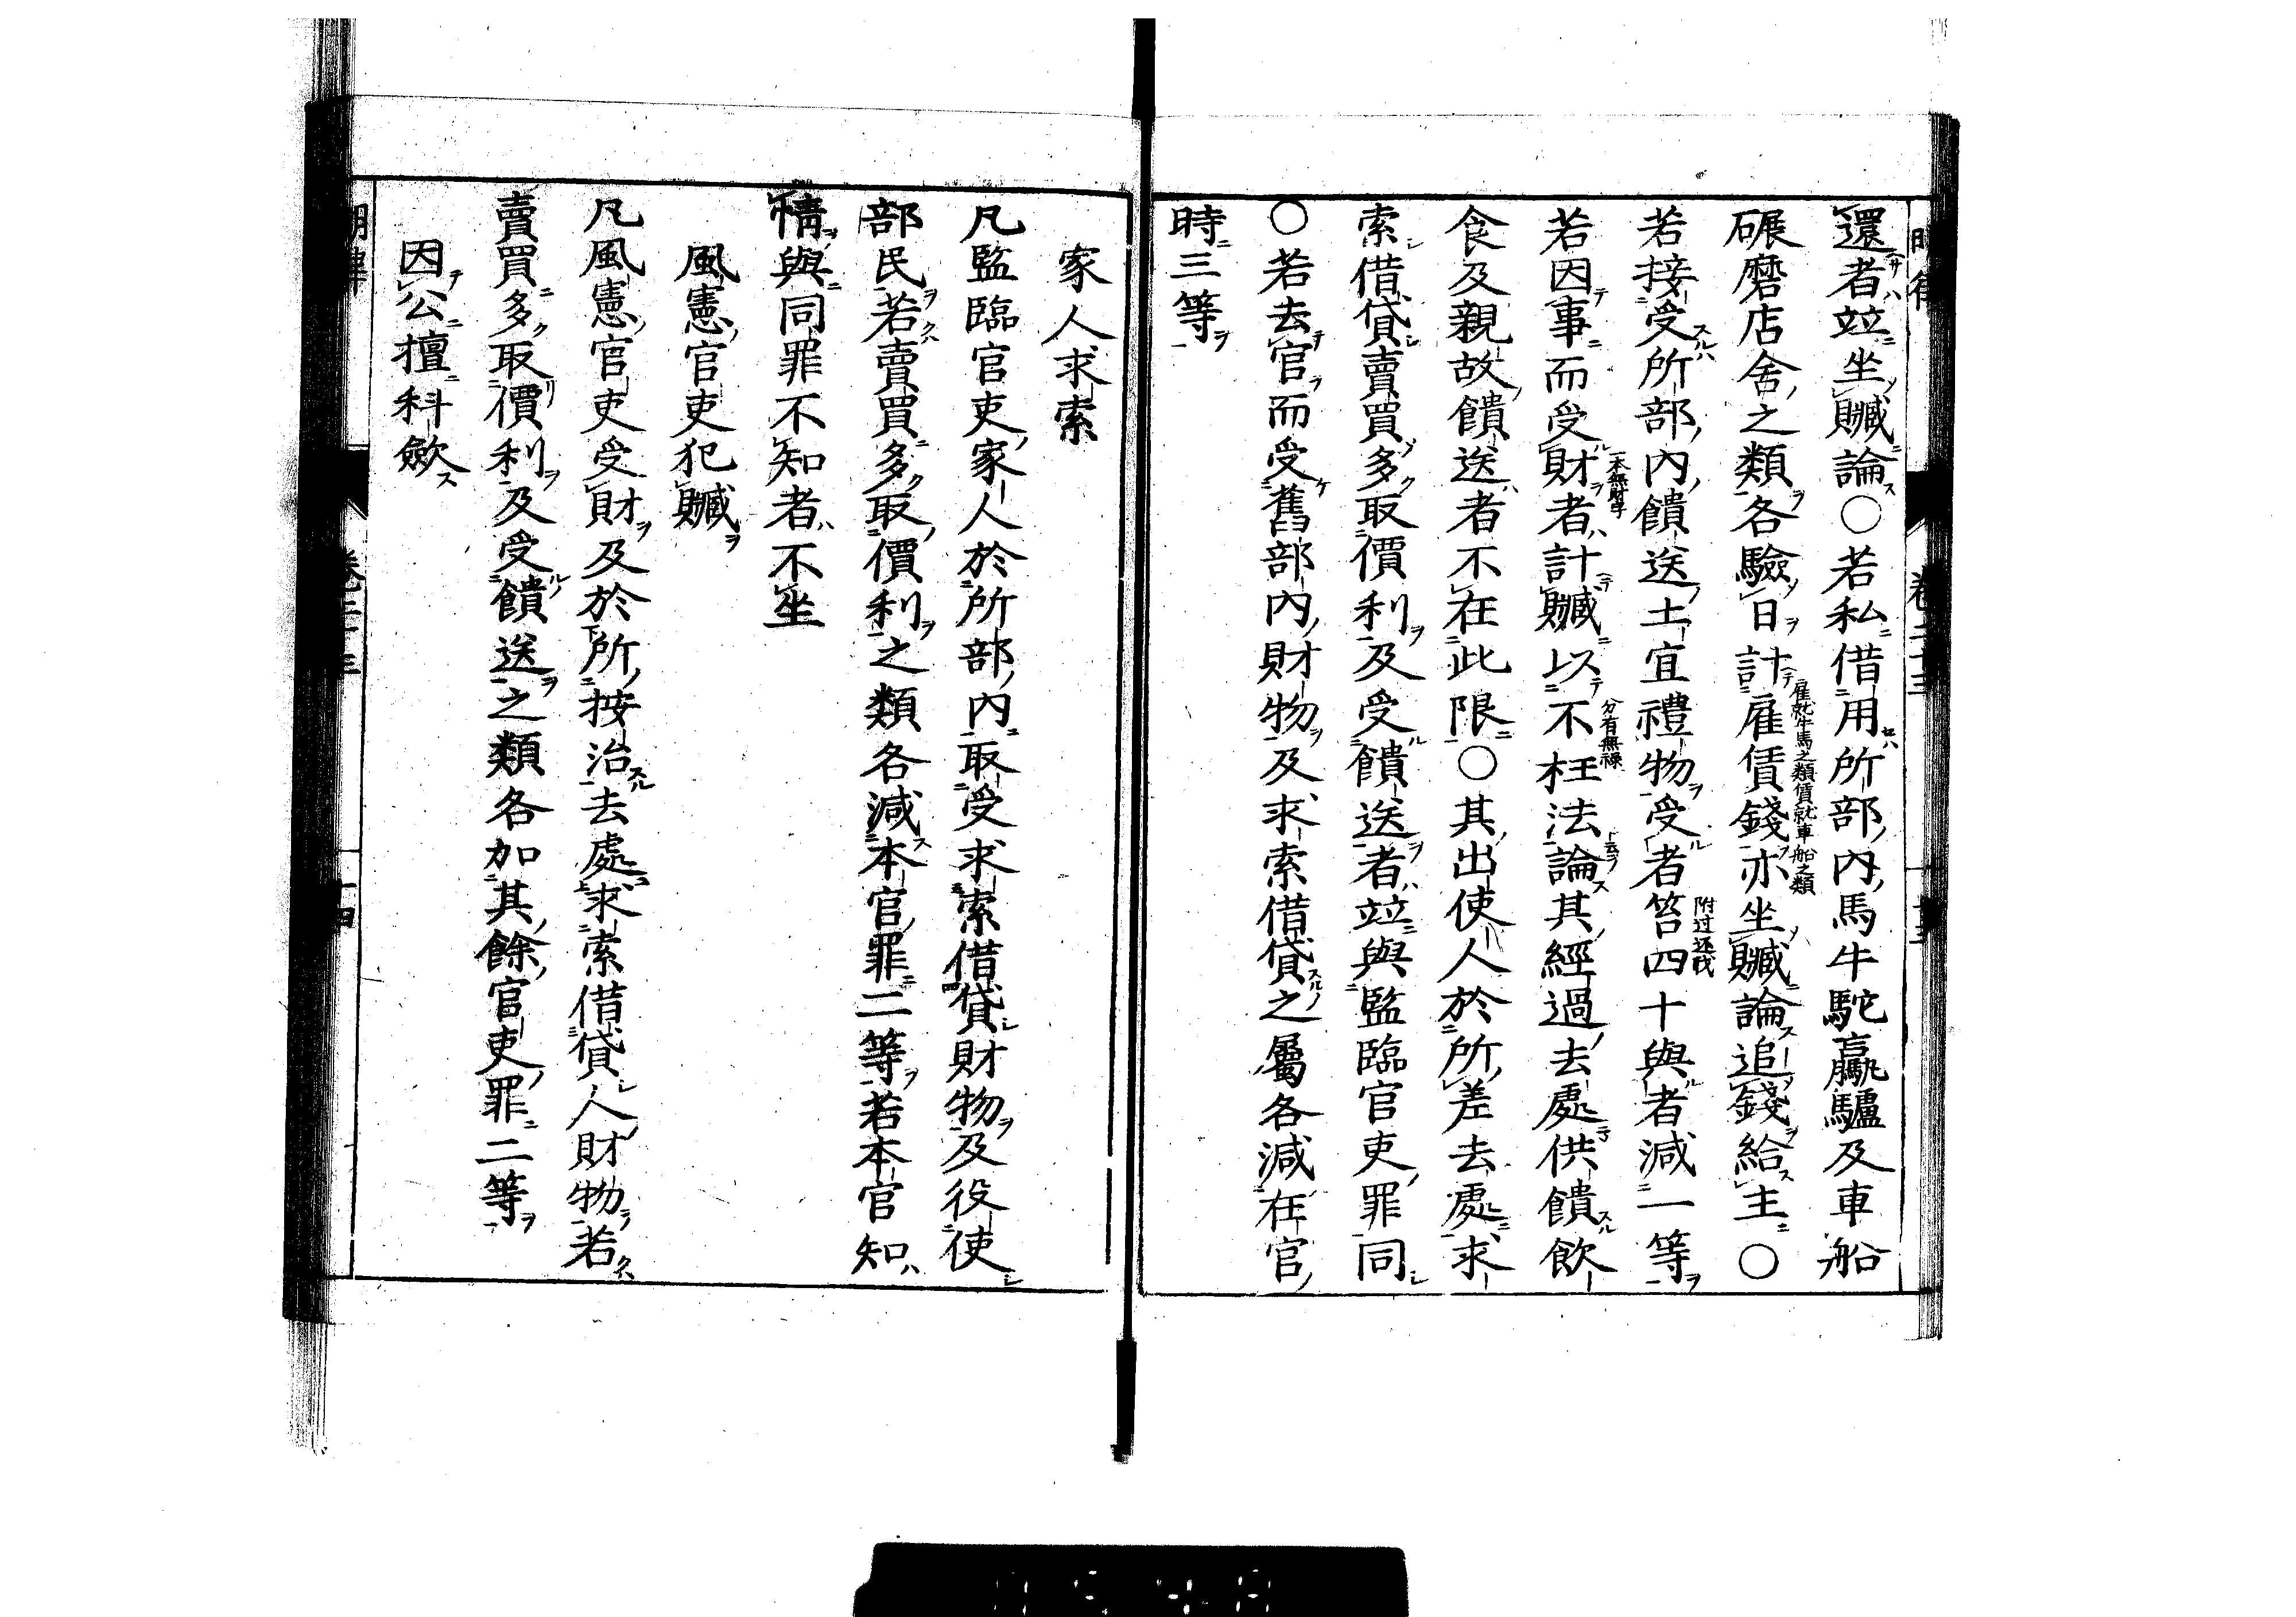 還者竝坐贓論○若私借用所部內馬牛駝驘驢及車船
碾磨店舍之類各驗日計雇賃錢亦坐贓論追錢給主○
雇就牛馬之類賃就車船之類
若接受所部內饋送土宜禮物受者笞四十與者減一等
附过还戝
若因事而受財者計贓以不枉法論其經過去處供饋飲
一本無財字
分有無祿
食及親故饋送者不在此限○其出使人於所差去處求
索借貸賣買多取價利及受饋送者竝與監臨官吏罪同
○若去官而受舊部內財物及求索借貸之屬各減在官
時三等
家人求索
凡監臨官吏家人於所部內取受求索借貸財物及役使
部民若賣買多取價利之類各減本官罪二等若本官知
情與同罪不知者不坐
風憲官吏犯贓
凡風憲官吏受財及於所按治去處求索借貸人財物若
賣買多取價利及受饋送之類各加其餘官吏罪二等
因公擅科歛